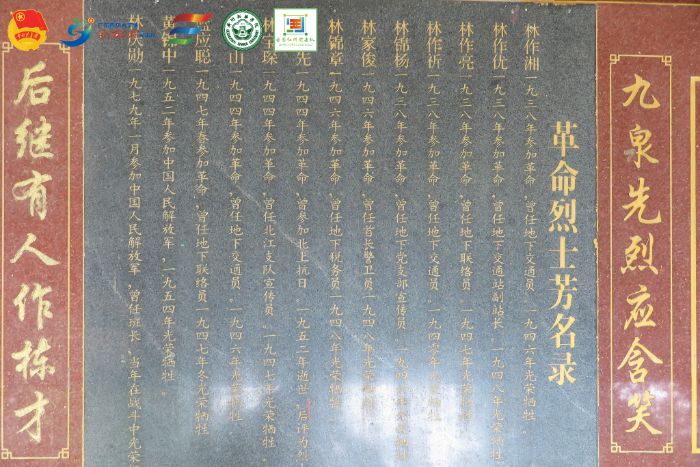 九泉先烈应含笑
革命烈士芳名录
林作湘 一九三八年参加革命，曾任地下交通员。一九四六年光荣牺牲。
林作优 一九三八年参加革命，曾任地下交通站副站长 一九四八年光荣牺牲
林作亮 一九三八年参加革命，曾任地下联络员 一九四七年光荣牺牲
林作祈 一九三八年参加革命，曾任地下交通员。一九四 年光荣牺牲
林锦杨 一九三八年参加革命，曾任地下党支部宣传员 一九四 年 光荣牺牲
林家俊 一九四六年参加革命，曾任首长警卫员 一九四八年光荣牺牲
林锦章 一九四六年参加革命，曾任地下税务员 一九四八年光荣牺牲
先 一九四四年参加革命，曾参加北上抗日。一九五二年逝世，后评为烈
林 琛 一九四四年参加革命，曾任北江支队宣传员。一九四七年光荣牺牲
山 一九四四年参加革命，曾任地下交通员。一九四六年光荣牺牲
应聪 一九四七年春参加革命，曾任地下联络员 一九四七年冬光荣牺牲
黄 中 一九五三年参加中国人民解放军，一九五四年光荣牺牲。
林庆勋 一九七九年一月参加中国人民解放军，曾任班长，当年在战斗中光荣
后继有人作栋才